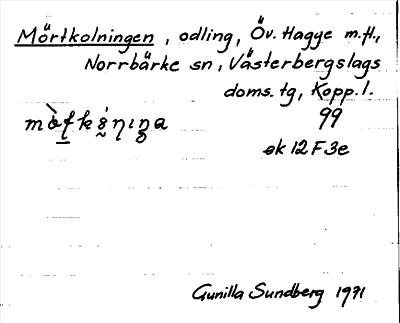 Mörtkolningen, odling, Öv. Hagge m.fl.,
Norrbärke sn, Västerbergslags
doms. tg, Kopp. l.
99
ek 12 F 3e
Gunilla Sundberg 1971